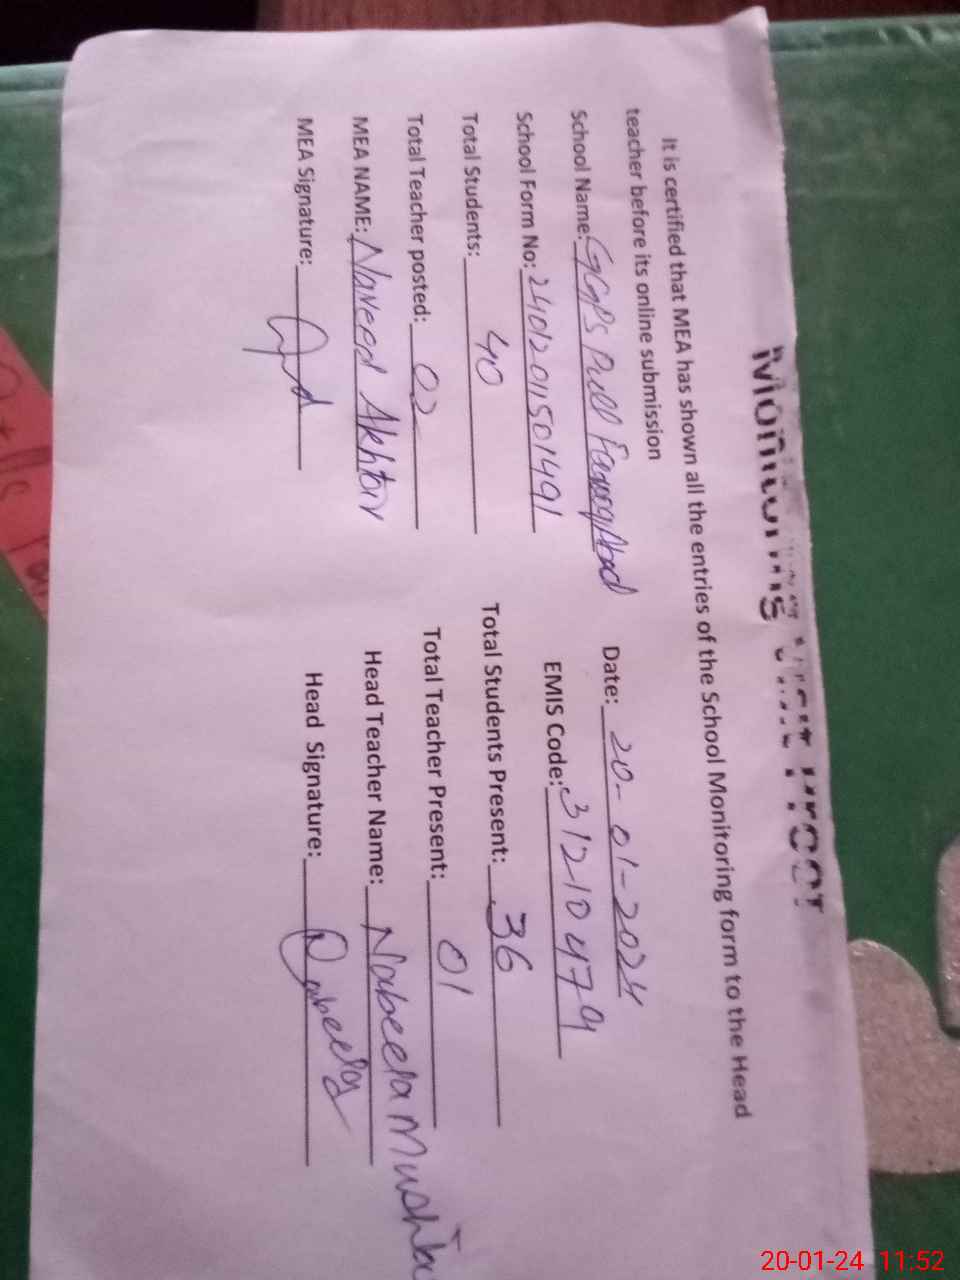 Monitoring Visit Proof
It is certified that MEA has shown all the entries of the School Monitoring form to the Head
teacher before its online submission
School Name: GGPS Pull Farooq Abad Date: 20-01-2024
School Form No: 24012011501491 EMIS Code: 31210479
Total Students: 40 Total Students Present: 36
Total Teacher posted: 02 Total Teacher Present: 01
MEA NAME: Naveed Akhtar Head Teacher Name: Nabeela Mushta
MEA Signature: Head Signature: Nabeela
20-01-24 11:52